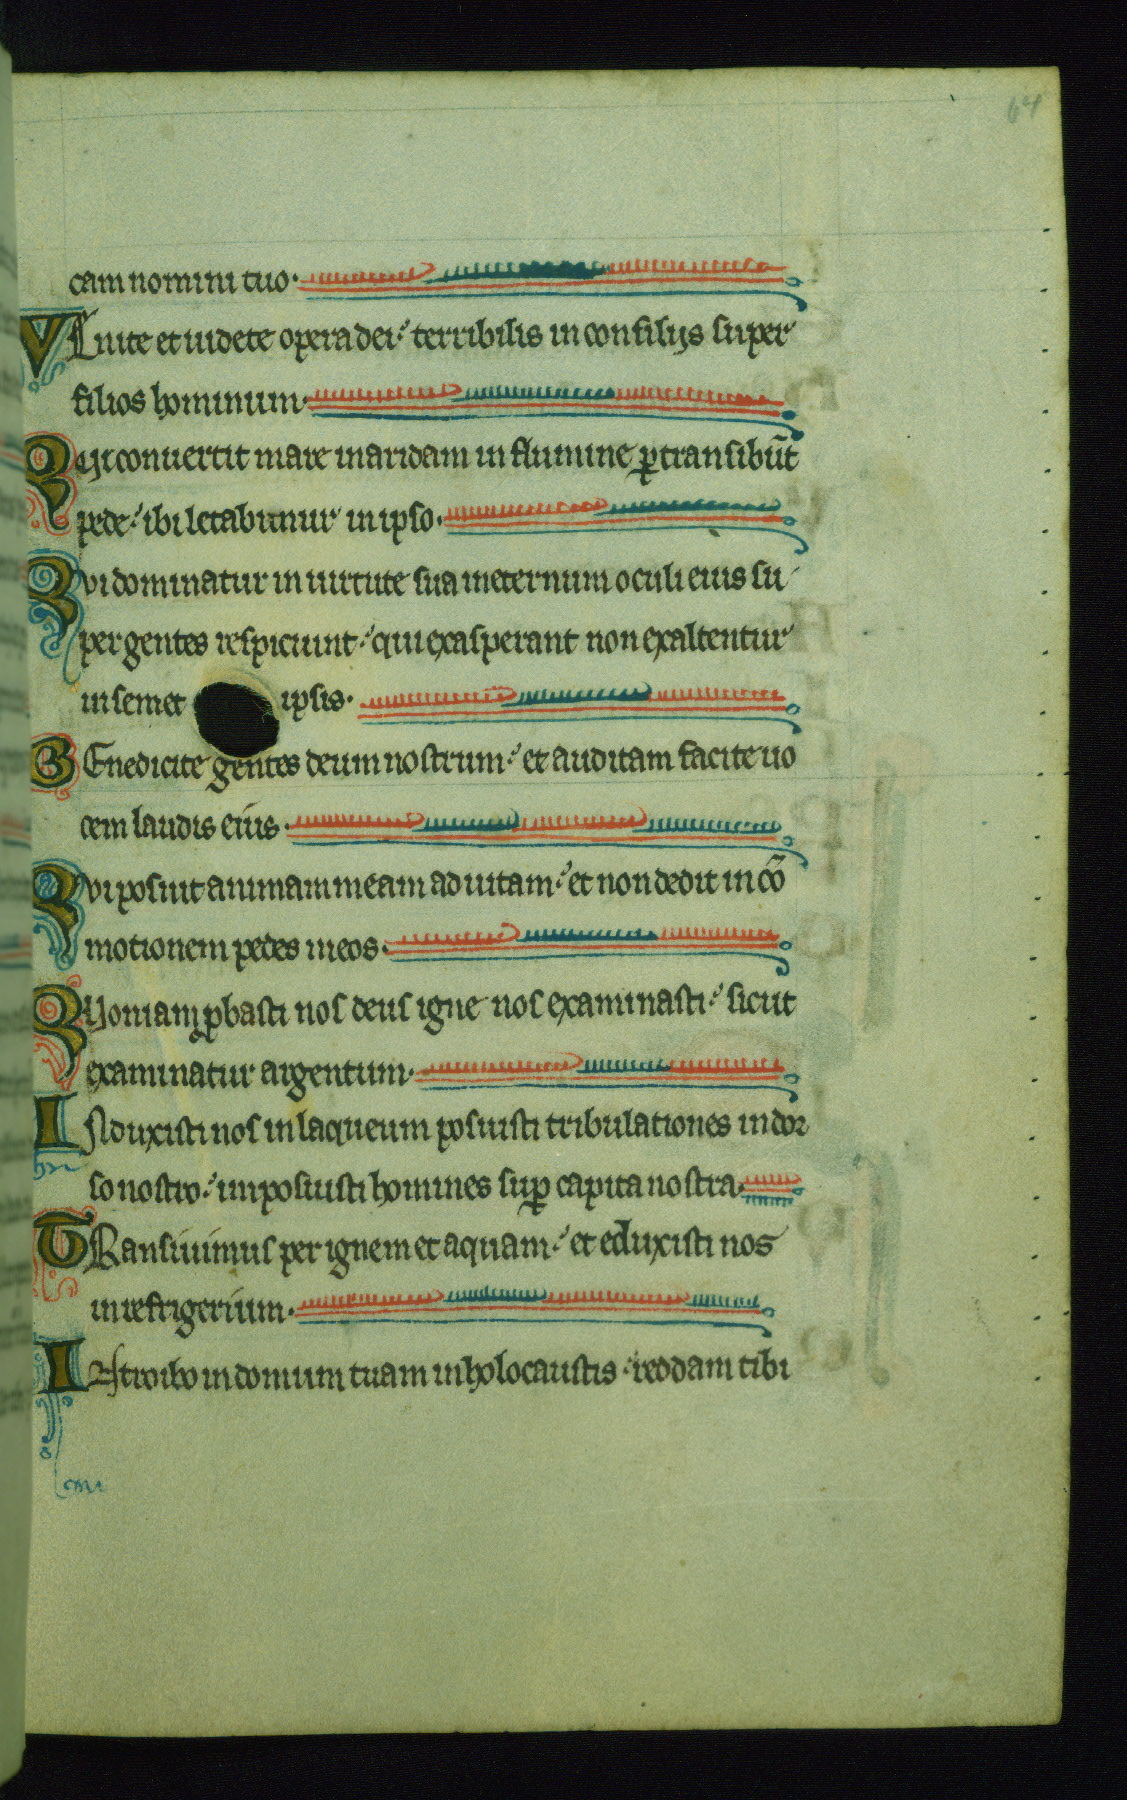 64
cam nomini tuo·
VEnite et uidete opera dei·́ terribilis in consilijs super
filios hominum·
Qui conuertit mare in aridam in flumine ꝑtransibūt
pede·́ ibi letabimur in ipso·
Qui dominatur in uirtute sua in eternum oculi eius su
per gentes respiciunt·́ qui exasperant non exaltentur
in semet ipsis·
BEnedicite gentes deum nostrum·́ et auditam facite uo
cem laudis eius·
Qui posuit animam meam ad uitam·́ et non dedit in cō
motionem pedes meos·
Quoniam ꝓbasti nos deus igne nos examinasti·́ sicut
examinatur argentum·
INduxisti nos in laqueum posuisti tribulationes in dor
so nostro·́ imposuisti homines suꝑ capita nostra·
TRansiuimus per ignem et aquam·́ et eduxisti nos
in refrigerium·
INtroibo in domum tuam in holocaustis·́ reddam tibi